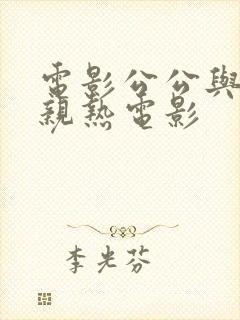 電影公公與
親熱電影
李光芬